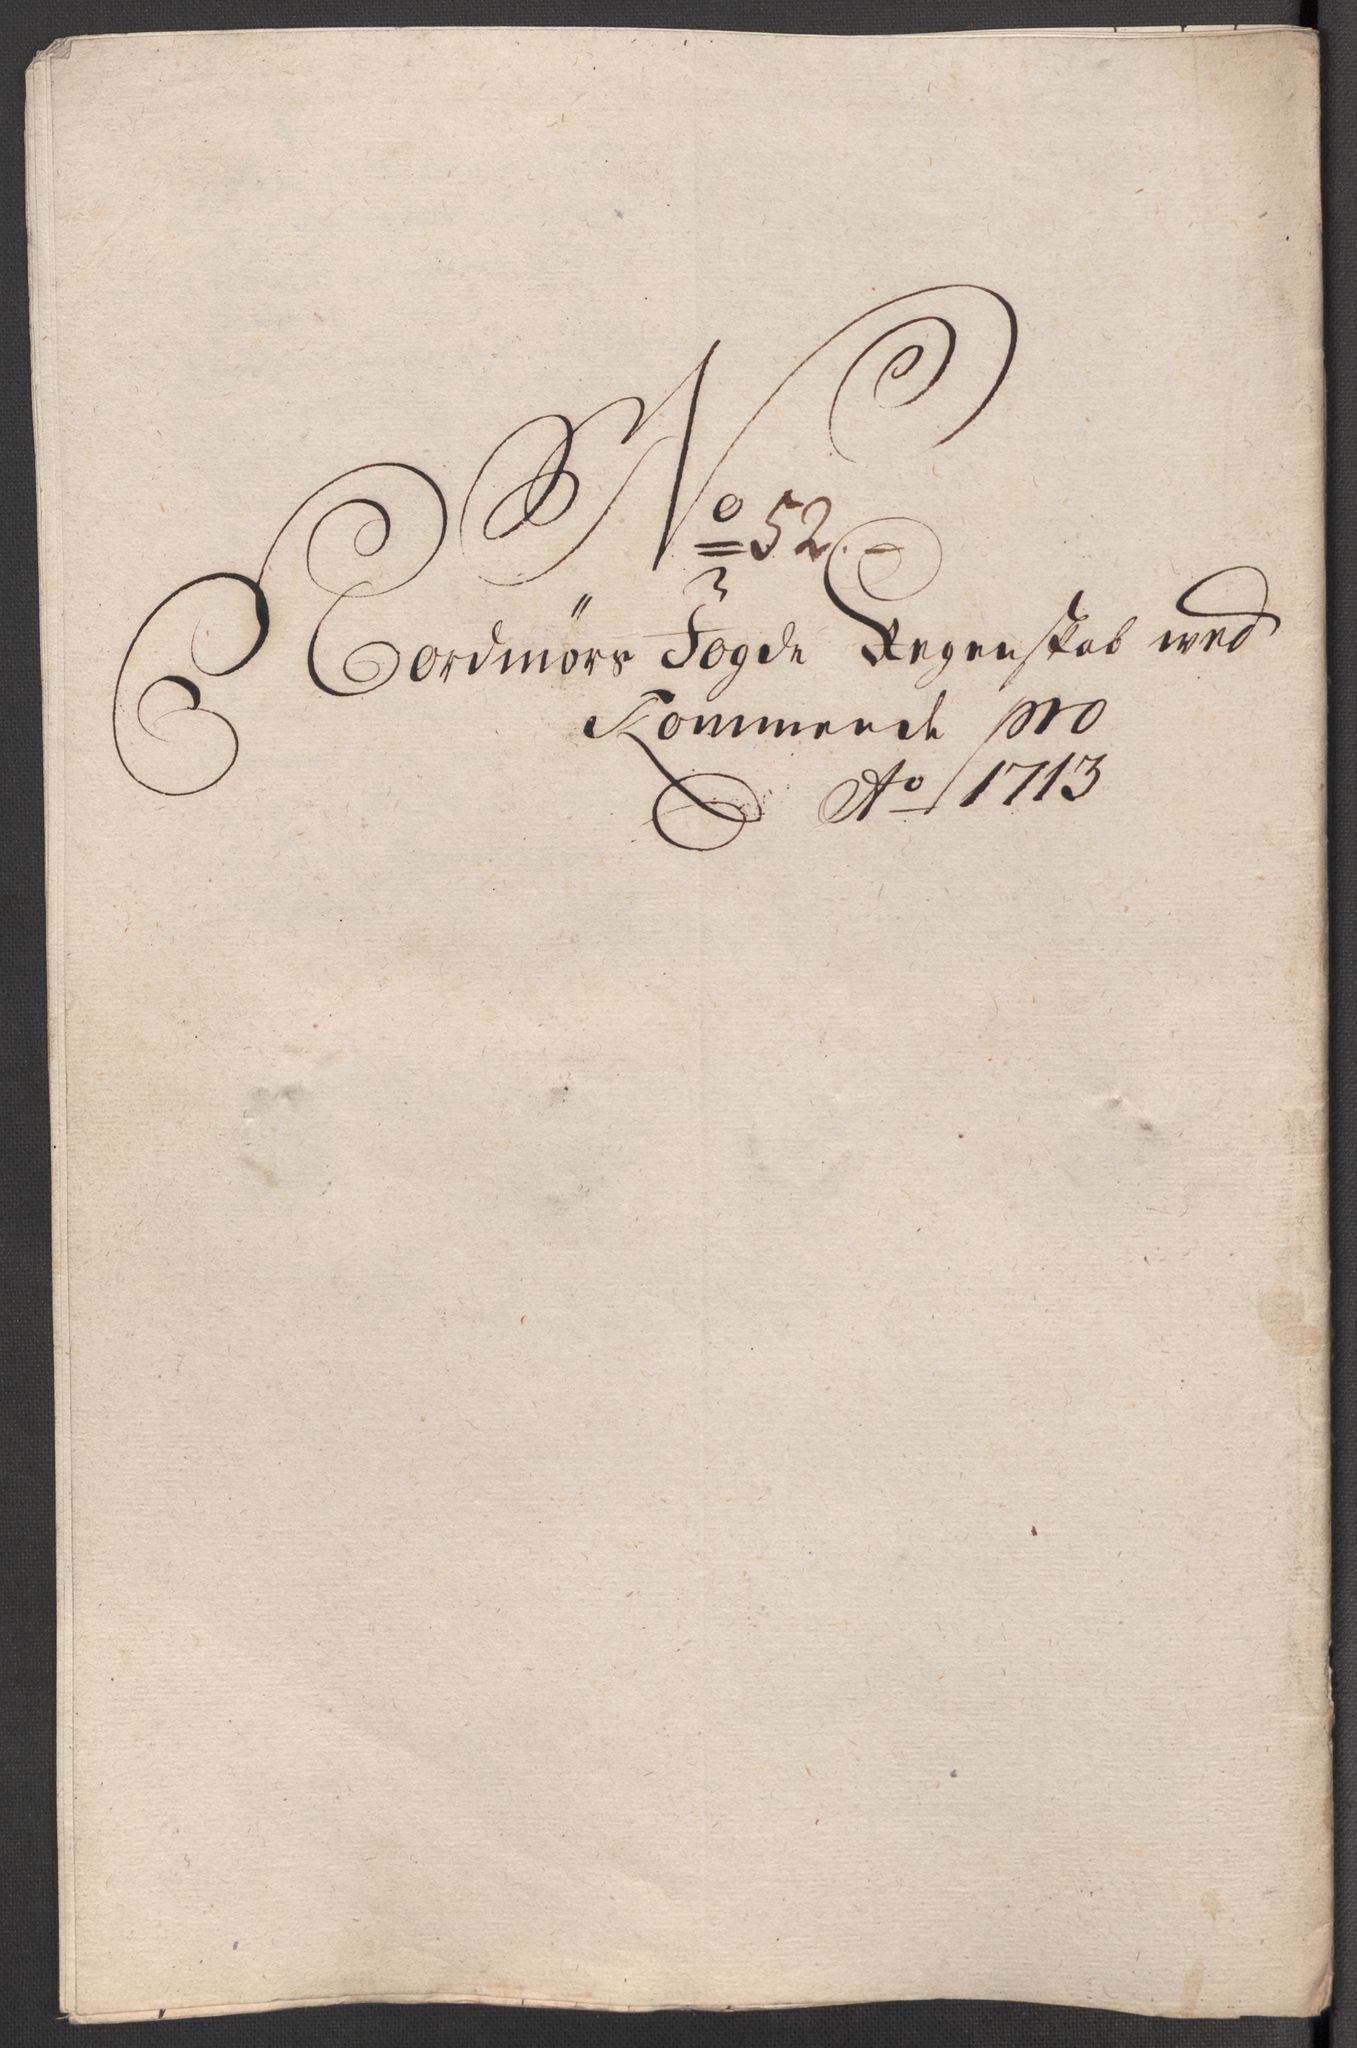 No 52.
Nordmørs Fogde Regenskab wed
Kommende pro
Ao 1713